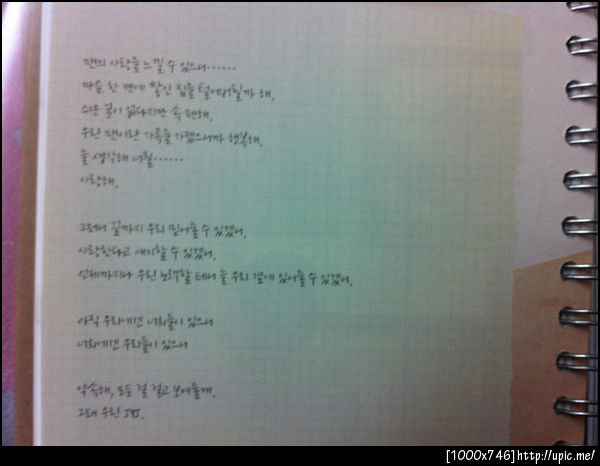 팬의 사랑을 느낄 수 있으니......
마음 한 켠에 쌓인 짐을 털어버릴까 해.
쉬운 일이 없다지만 속 편해.
우린 팬이란 가족을 가졌으니까 행복해.
늘 생각해 너흴......
사랑해.
그러니 끝까지 우리 믿어줄 수 있겠니.
사랑한다고 얘기할 수 있겠니.
언제까지나 우린 노력할 테니 늘 우리 곁에 있어줄 수 있겠니.
아직 우리에겐 너희들이 있으니
너희에겐 우리들이 있으니
약속해, 모든 걸 걸고 보여줄게.
그래 우린 JYJ.
[1000x746]http://upic.me/